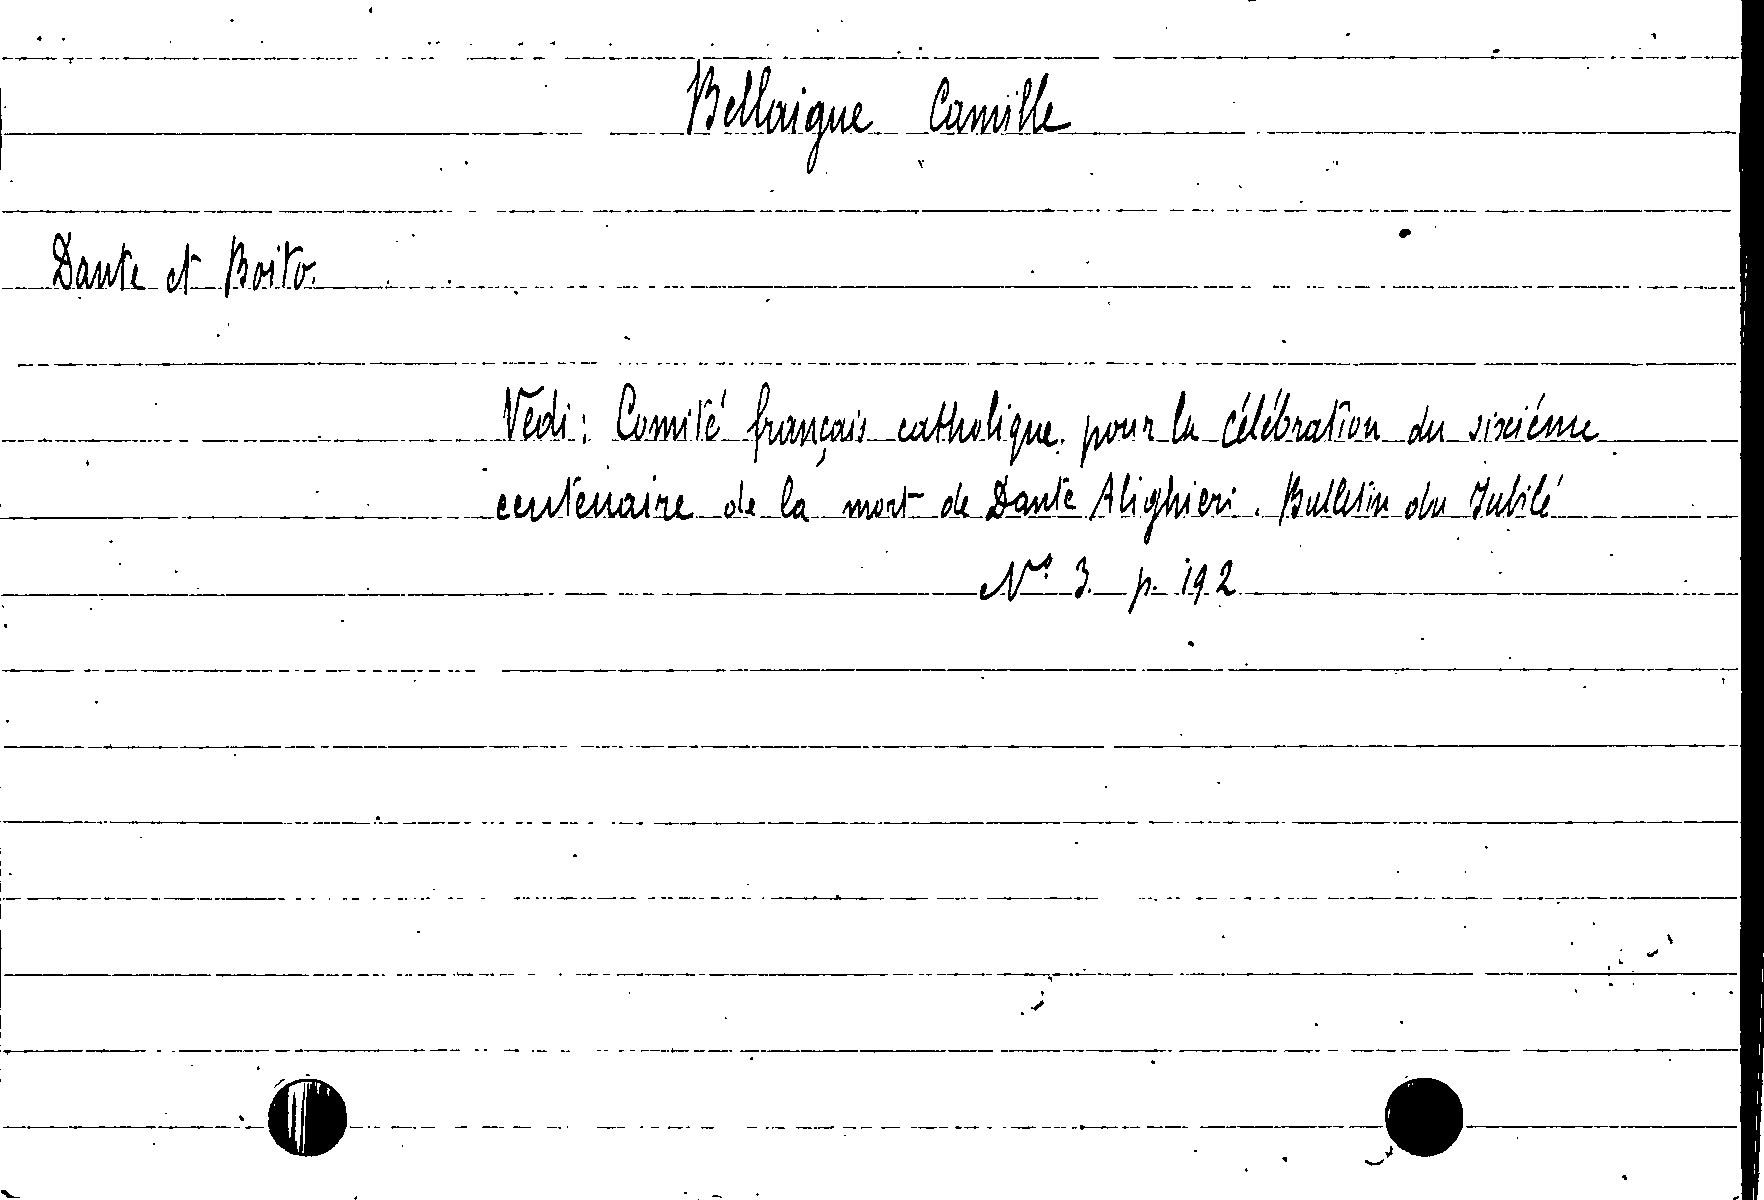 Bellaigue Camille
Dante et Boito.
Vedi: Comité français catholique pour la célébration du sixiéme
centenaire de la mort de Dante Alighieri. Bulletin du Jubilé
N° 3. p. 192